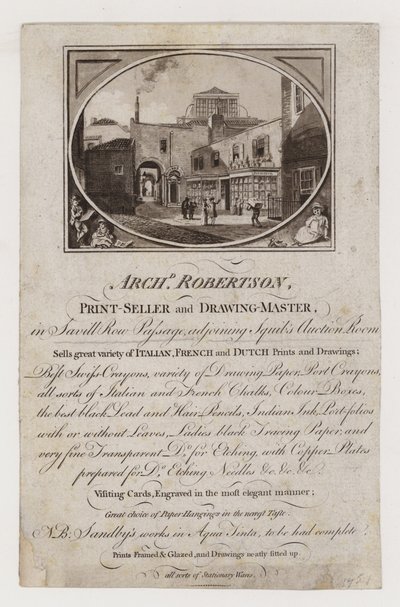 ARCH.D ROBERTSON,
PRINT-SELLER and DRAWING-MASTER,
in Savill Row Passage, adjoining Squib's Auction Room
Sells great variety of ITALIAN, FRENCH and DUTCH Prints and Drawings;
Best Swiss Crayons, variety of Drawing Paper, Port Crayons,
all sorts of Italian and French Chalks, Colour Boxes,
the best black Lead and Hair Pencils, Indian Ink, Port-folios
with or without Leaves, Ladies black Tracing Paper, and
very fine Transparent D.o for Etching, with Copper Plates
prepared for D.o Etching Needles &c. &c. &c.
Visiting Cards, Engraved in the most elegant manner;
Great choice of Paper Hangings in the newest Taste.
NB: Sandby's works in Aqua Tenta, to be had complete;
Prints Framed & Glazed, and Drawings neatly fitted up.
all sorts of Stationary Wares.